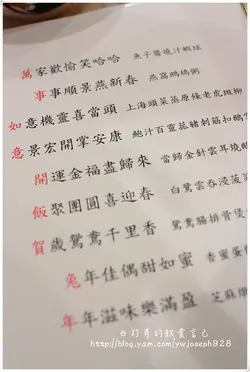 萬家歡愉笑哈哈 魚子醬燒汁蝦球
事事順景燕新春 燕窩鷓鴣粥
如意機靈喜當頭 上海頭菜蒸原條老虎斑柳
意景宏開掌安康 鮑汁百靈菇豬刺筋扣鵝
開運金福盡歸來 當歸金針雲耳燒
飯聚團圓喜迎春 白鷺雲吞浸菠菜
賀歲鴛鴦千里香 鴛鴦腸排骨煲
兔年佳偶甜如蜜 香蜜蛋
年年滋味樂滿盈 芝麻
的飲食言己
http://blog.yam.com/ywjoseph928